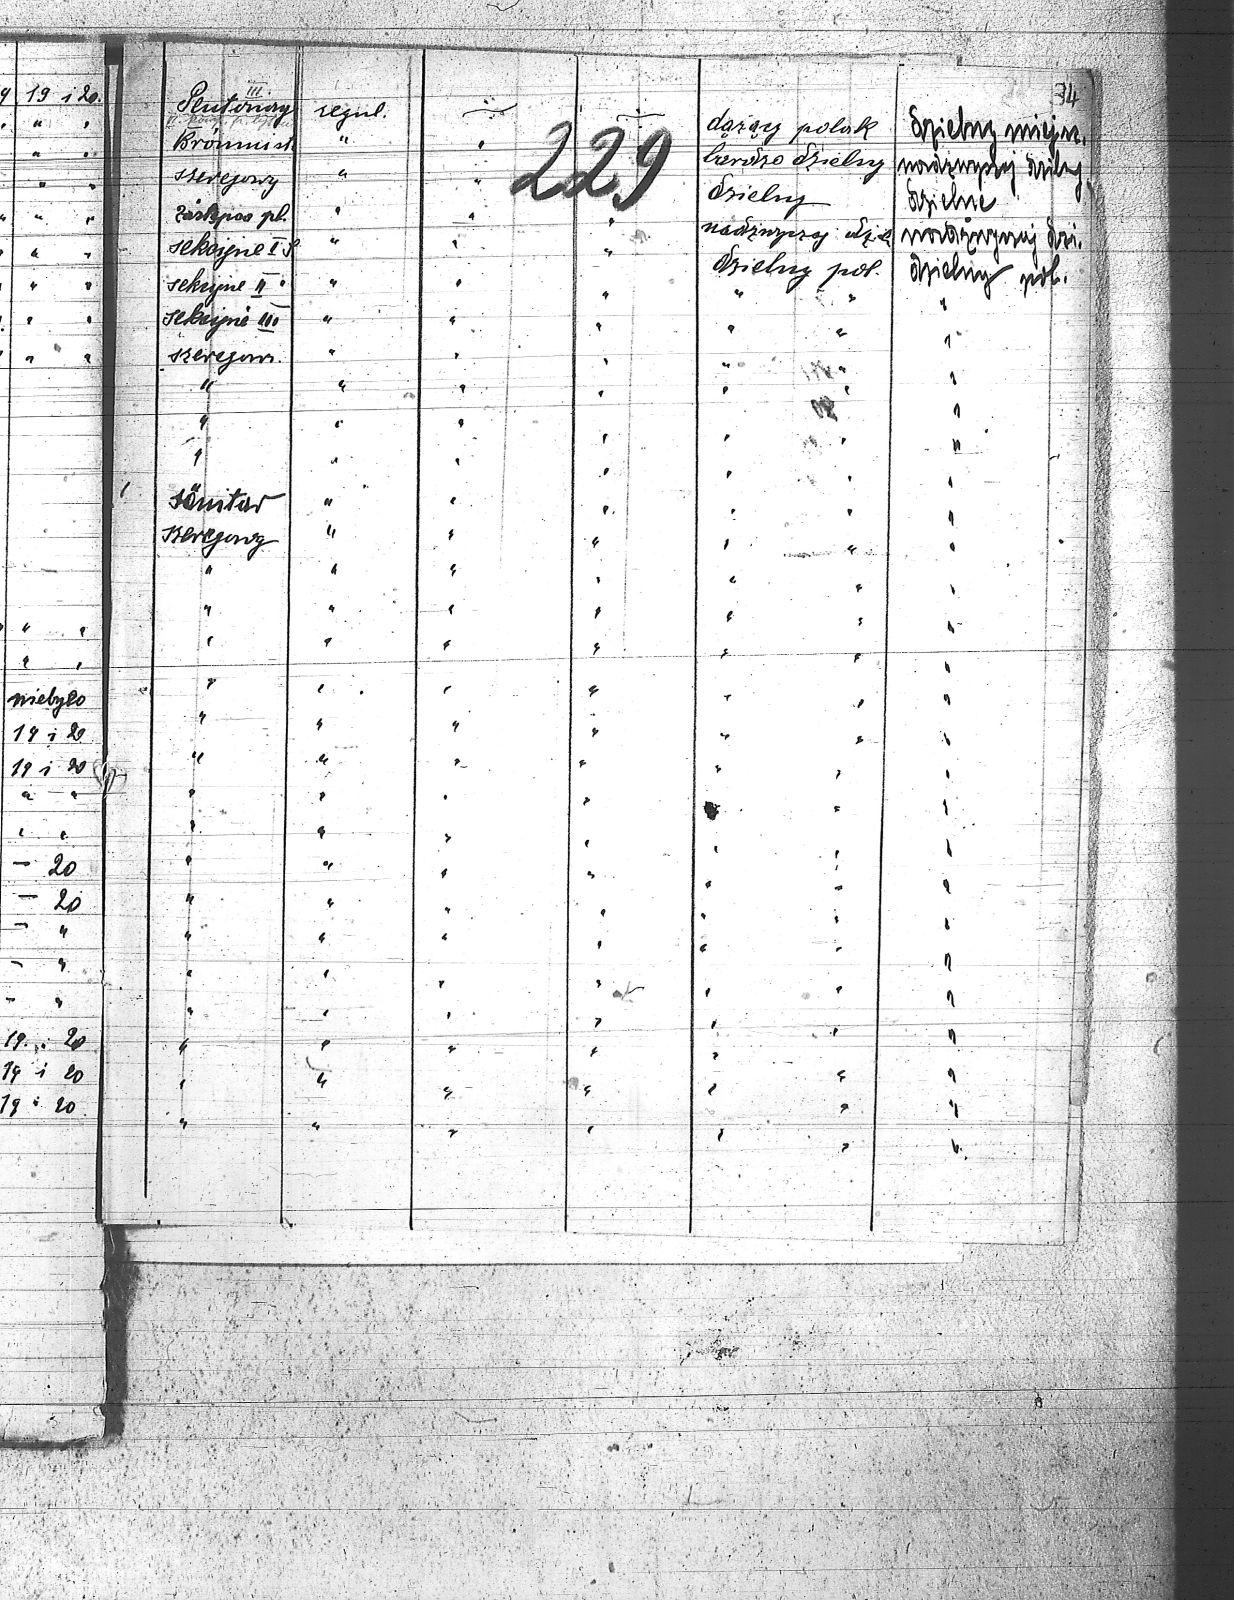 34
19 i 20.
III.
Plutonowy regul.
dążący polak dzielny miejsc.
229
bardzo dzielny nadzwyczaj dzielny
szeregowy " " dzielny dzielne
zast. poo pl.
sekcyjne I " nadzwyczaj dzie nadzwyczaj dzi.
sekcyjne II " dzielny pol. dzielny pol.
sekcyjne III " " " " "
szeregow. " " " " "
" " " " " "
" " " " " "
" " " " " "
sanitar " " " " "
szeregowy " " " " "
" " " " " "
" " " " " "
" " " " " "
niebyło " " " " " "
19 i 20 " " " " " "
19 i 20 " " " " " "
" " " " " " " "
" " " " " " " "
— 20 " " " " " "
— 20 " " " " " "
— " " " " " " "
— " " " " " " "
— " " " " " " "
19 i 20 " " " " " "
19 i 20 " " " " " "
19 i 20 " " " " " "